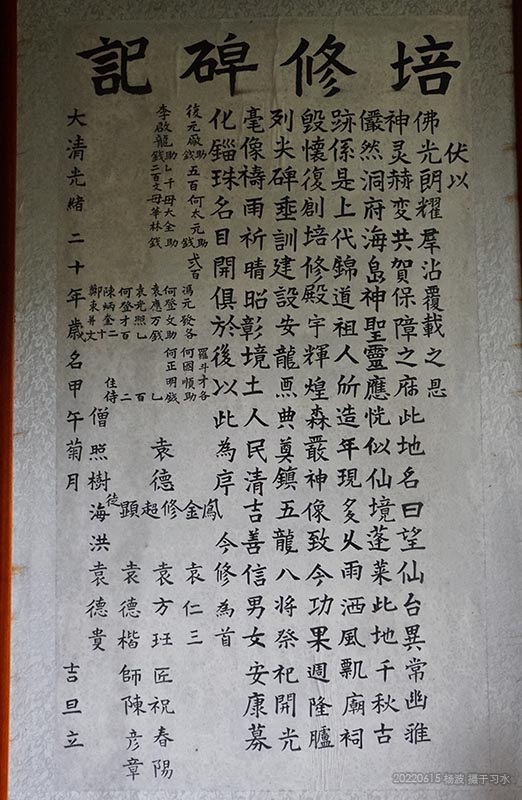 培修碑記
伏以
佛光朗耀羣沾覆載之恩
神灵赫变共賀保障之庥此地名曰望仙台異常幽雅
儼然洞府海島神聖靈應恍似仙境蓬萊此地千秋古
跡係是上代錦道祖人所造年現多乆雨洒風飄廟祠
毀懷復創培修殿宇輝煌森嚴神像致今功果週隆臚
列夫碑垂訓建設安龍奠鎮五龍八將祭祀開光
毫像禱雨祈晴昭彰境土人民清吉善信男女安康募
化錙珠名目開俱於後以此為序 今修為首
復元厰助錢五百 何太元助錢弍百 馮元發 何國順 羅斗才各助
李啟龍助乚千 母大金助 母華林錢 何登文助 何正明錢
袁應万錢乚百
袁光照乚百
何登才百二
陳炳奎二十
鄭東
住侍僧照樹 徒海洪
袁德鳳金修超顯
袁仁三
袁方玨
袁德楷
袁德貴
匠師祝春陽
陳彦章
大清光緒二十年歲名甲午菊月 吉旦立
20220615 杨波 摄于习水